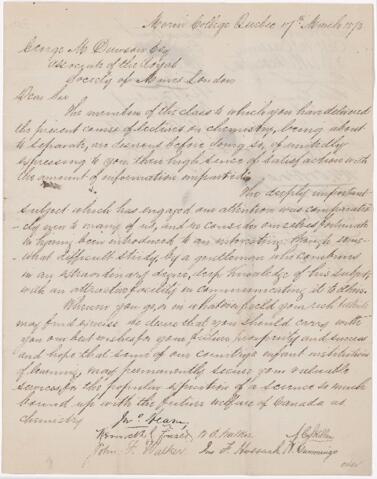 Morrin College Quebec 17th March 1873
George M Dawson Esq
Associate of the Royal
Society of Mines London
Dear Sir
The members of the class to which you have delivered
the present course of lectures on chemistry, being about
to separate, are desirous before doing so, of unitedly
expressing to you their high sense of satisfaction with
the amount of information imparted.
The deeply important
subject which has engaged our attention was comparative-
ly new to many of us, and we consider ourselves fortunate
in having been introduced to an interesting though some-
what difficult study, by a gentleman who combines
in an extraordinary degree, deep knowledge of his subject
with an attractive facility in communicating it to others.
Wherever you go, or in whatever field your rich talents
may find exercise we desire that you should carry with
you our best wishes for your future prosperity and success
and hope that some of our country's infant institutions
of learning, may permanently secure your valuable
services, for the popular exposition of a science so much
bound up with the future welfare of Canada as
chemistry
Jno. Hearn
Kenneth J. Fraser W. B. Walker
John F. Walker Jno F. Hossack R Cummings
over